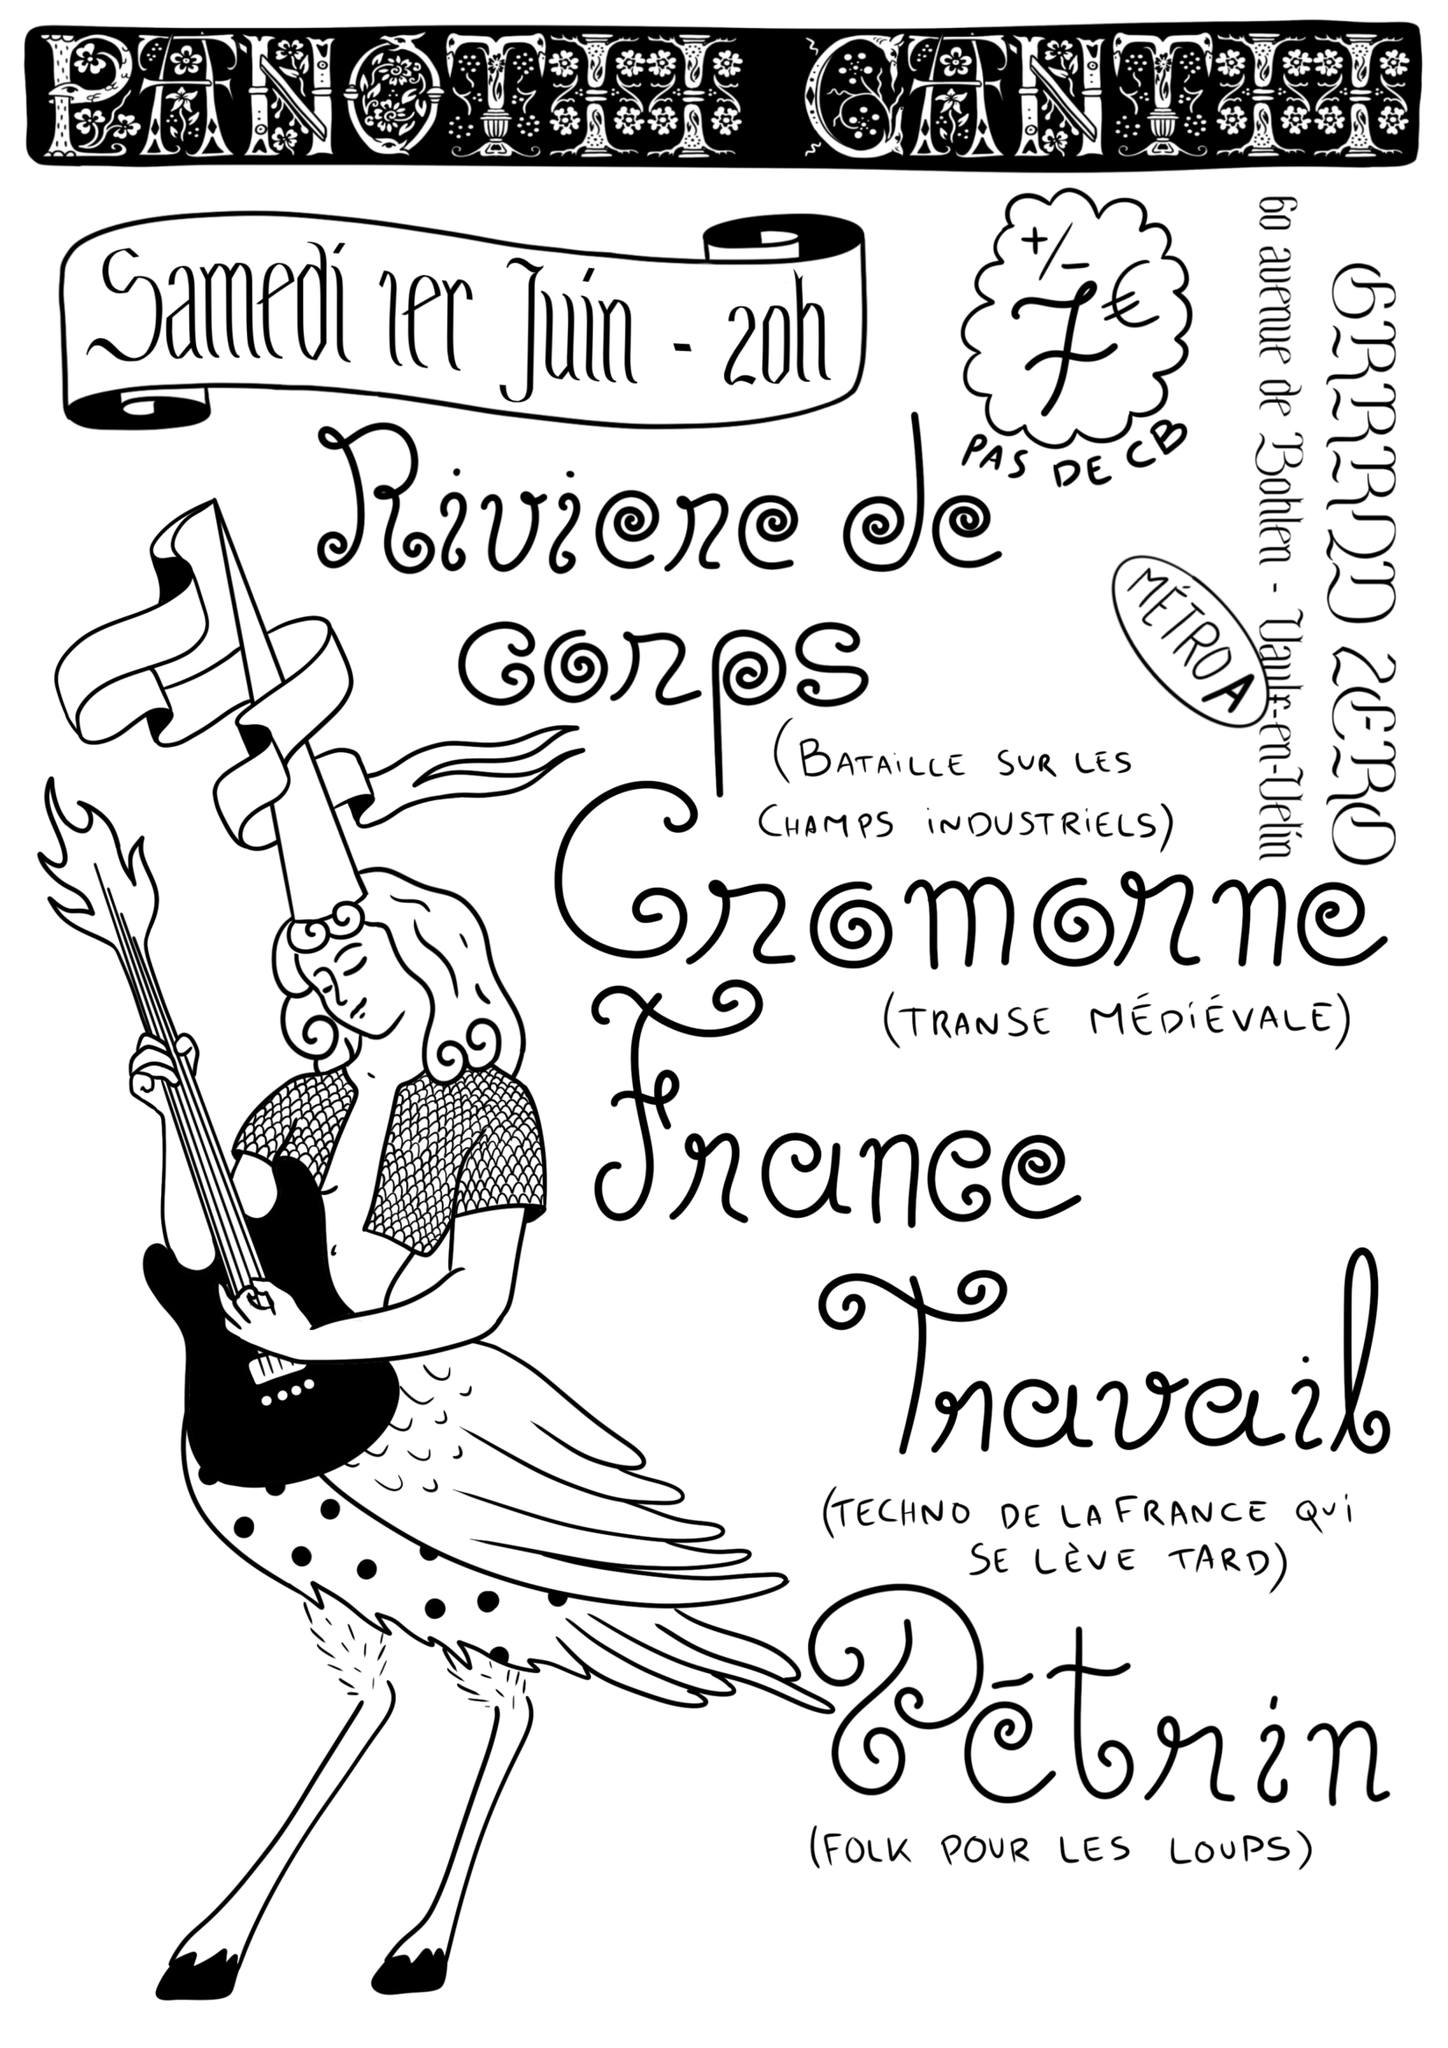 PANOTII CANTII
Samedi 1er Juin - 20h
+/-
7€
PAS DE CB
GRRRND ZERO
60 avenue de Bohlen - Vaulx-en-Velin
MÉTRO A
Riviere de
corps
(BATAILLE SUR LES
CHAMPS INDUSTRIELS)
Cromorne
(TRANSE MÉDIÉVALE)
France
Travail
(TECHNO DE LA FRANCE QUI
SE LÈVE TARD)
Pétrin
(FOLK POUR LES LOUPS)